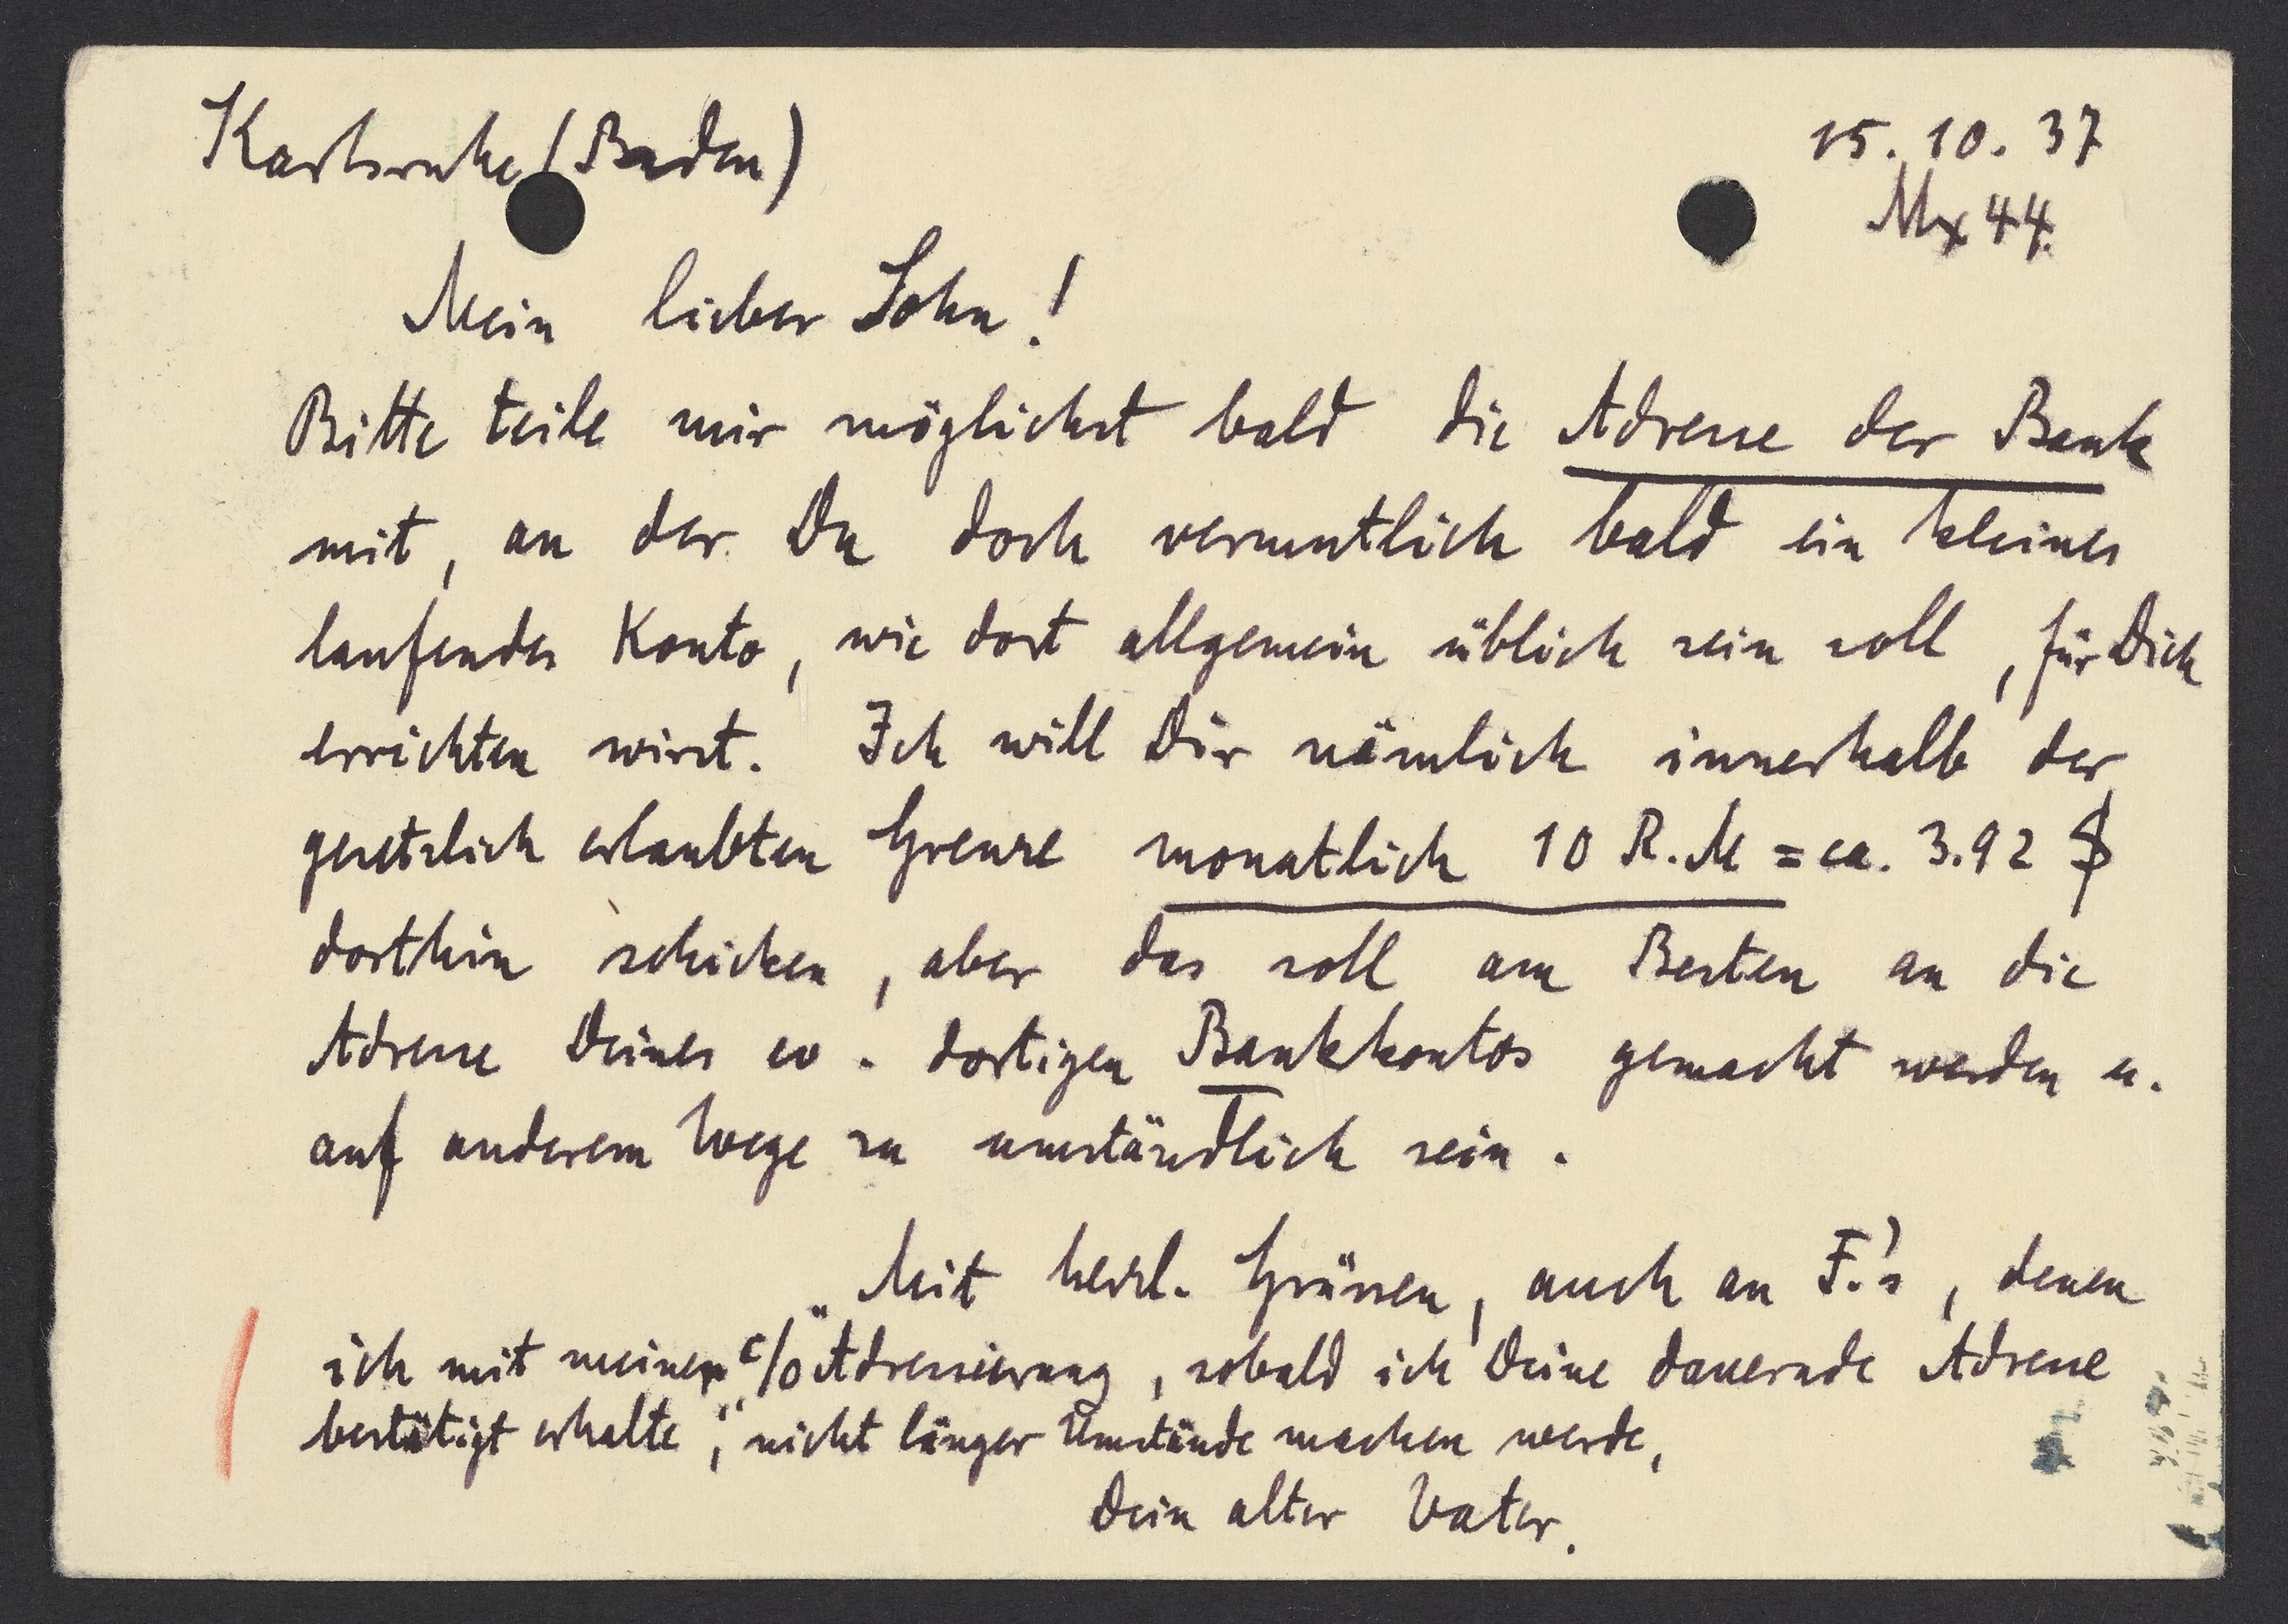 Karlsruhe (Baden)
15.10.37
Mx 44.
Mein lieber Sohn!
Bitte teile mir möglichst bald die Adresse der Bank
mit, an der Du doch vermutlich bald ein kleines
laufendes Konto, wie dort allgemein üblich sein soll, für Dich
errichten wirst. Ich will Dir nämlich innerhalb der
gesetzlich erlaubten Grenze monatlich 10 R.M = ca. 3.92 $
dorthin schicken, aber das soll am Besten an die
Adresse Deines ev. dortigen Bankkontos gemacht werden u.
auf anderem Wege zu umständlich sein.
Mit herzl. Grüssen, auch an F.'s, denen
ich mit meiner "c/o Adressierung, sobald ich Deine dauernde Adresse
bestätigt erhalte," nicht länger Umstände machen werde,
Dein alter Vater.